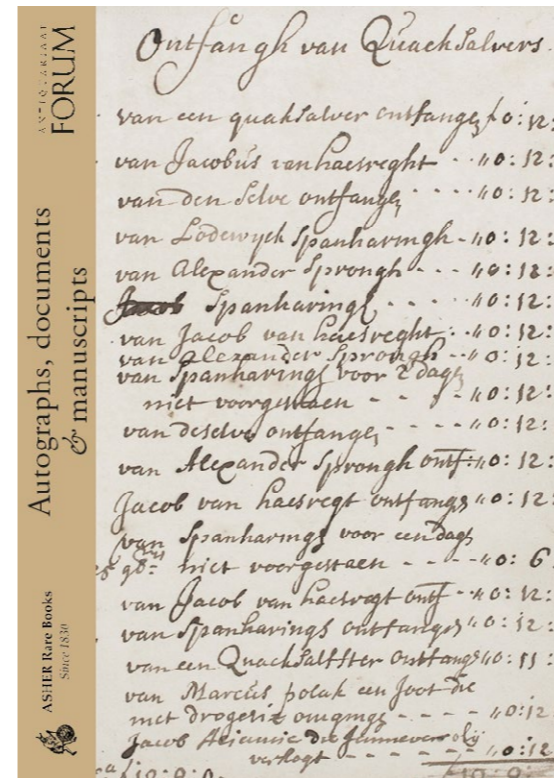 ANTIQUARIAAT
FORUM
Autographs, documents
& manuscripts
ASHER Rare Books
Since 1830
Ontfangh van Quacksalvers.
van een quaksalver ontfange f 0:12:
van Jacobus van haesreght - - "0:12:
van den Selve ontfange - - - - "0:12:
van Lodewyck Spanharingh - "0:12:
van Alexander Sprongh - - - "0:12:
Spanharings - - - - "0:12:
van Jacob van haesreght - - "0:12:
van Alexander Sprongh - - "0:12:
van Spanharings voor 2 dage
niet voorgestaen - - - - "0:12:
van deselve ontfange - - - - "0:12:
van Alexander Sprongh ontf: "0:12:
Jacob van haesregt ontfange "0:12:
van Spanharings voor een dag
niet voorgestaen - - - - "0: 6
van Jacob van haesregt ontf - "0:12:
van Spanharings ontfange "0:12:
van een Quacksalfster ontfange "0:11:
van Marcus polak een Joot die
met drogerie omgings - - - - "0:12
Jacob die Jennever oly
verkogt - - - - - - "0:12